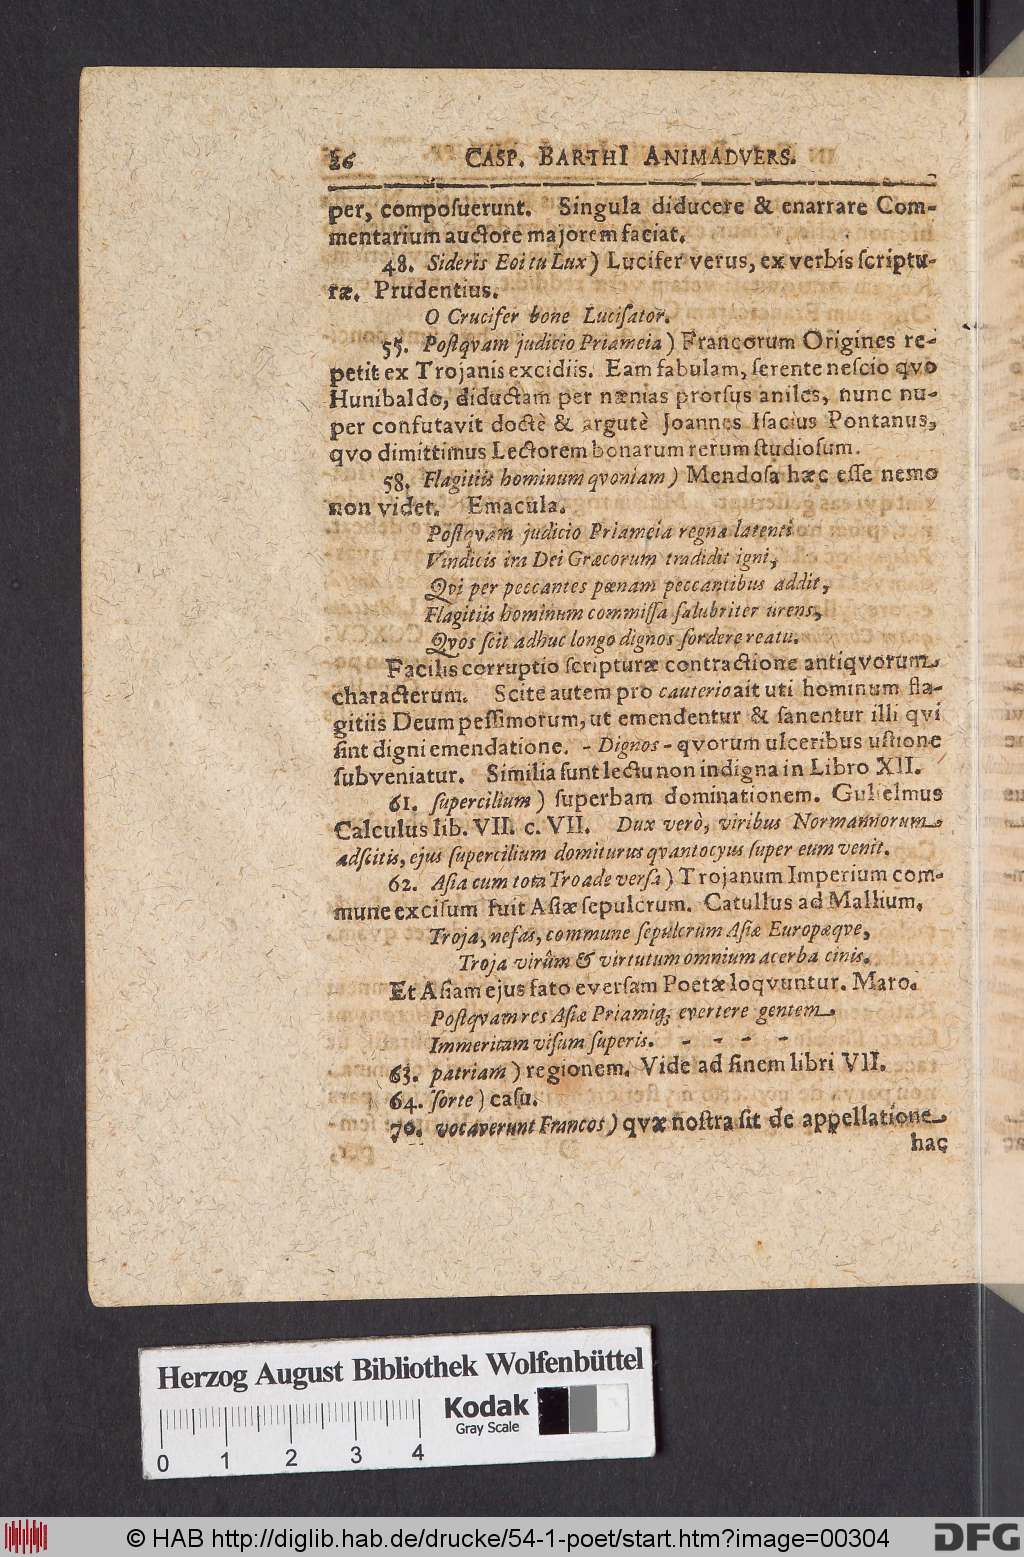 26 CASP. BARTHI ANIMADVERS.
per, compoſuerunt. Singula diducere & enarrare Com-
mentarium auctore majorem faciat.
48. Sideris Eoi tu Lux) Lucifer verus, ex verbis ſcriptu-
ræ. Prudentius.
O Crucifer bone Luciſator.
55. Poſtqvam judicio Priameia) Francorum Origines re-
petit ex Trojanis excidiis. Eam fabulam, ſerente neſcio qvo
Hunibaldo, diductam per nænias prorſus aniles, nunc nu-
per confutavit doctè & argutè Joannes Iſacius Pontanus,
qvo dimittimus Lectorem bonarum rerum ſtudioſum.
58. Flagitiis hominum qvoniam) Mendoſa hæc eſſe nemo
non videt. Emacula.
Poſtqvam judicio Priameia regna latenti
Vindicis ira Dei Græcorum tradidit igni,
Qvi per peccantes pœnam peccantibus addit,
Flagitiis hominum commiſſa ſalubriter urens,
Qvos ſcit adhuc longo dignos ſordere reatu.
Facilis corruptio ſcripturæ contractione antiqvorum
characterum. Scite autem pro cauterio ait uti hominum fla-
gitiis Deum peſſimorum, ut emendentur & ſanentur illi qvi
ſint digni emendatione. - Dignos - qvorum ulceribus uſtione
ſubveniatur. Similia ſunt lectu non indigna in Libro XII.
61. ſupercilium) ſuperbam dominationem. Gulielmus
Calculus lib. VII. c. VII. Dux verò, viribus Normannorum
adſcitis, ejus ſupercilium domiturus qvantocyus ſuper eum venit.
62. Aſia cum tota Troade verſa) Trojanum Imperium com-
mune exciſum fuit Aſiæ ſepulcrum. Catullus ad Mallium,
Troja, nefas, commune ſepulcrum Aſiæ Europæqve,
Troja virûm & virtutum omnium acerba cinis.
Et Aſiam ejus fato everſam Poetæ loqvuntur. Maro.
Poſtqvam res Aſiæ Priamiq; evertere gentem
Immeritam viſum ſuperis. - - - -
63. patriam) regionem. Vide ad finem libri VII.
64. ſorte) caſu.
70. vocaverunt Francos) qvæ noſtra ſit de appellatione
hac
Herzog August Bibliothek Wolfenbüttel
Kodak
Gray Scale
0 1 2 3 4
© HAB http://diglib.hab.de/drucke/54-1-poet/start.htm?image=00304
DFG